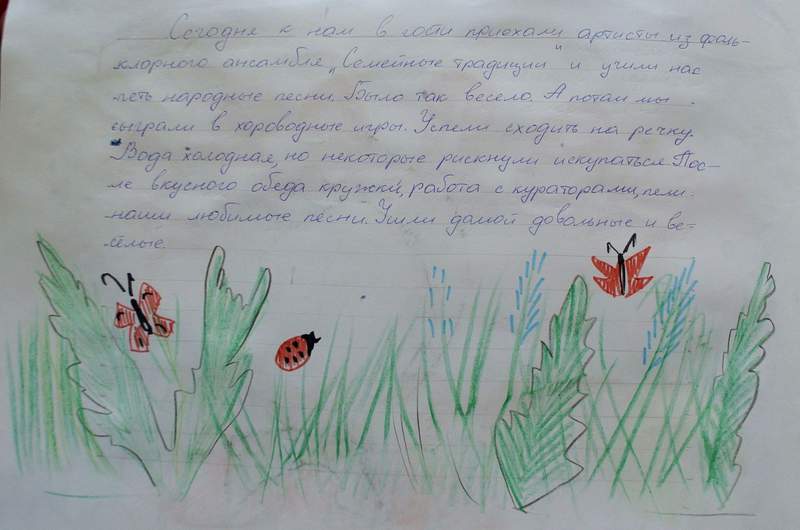 Сегодня к нам в гости приехали артисты из фоль-
клорного ансамбля „Семейные традиции" и учили нас
петь народные песни. Было так весело. А потом мы
сыграли в хороводные игры. Успели сходить на речку.
Вода холодная, но некоторые рискнули искупаться. Пос-
ле вкусного обеда кружки, работа с кураторами, пели
наши любимые песни. Ушли домой довольные и ве-
сёлые.